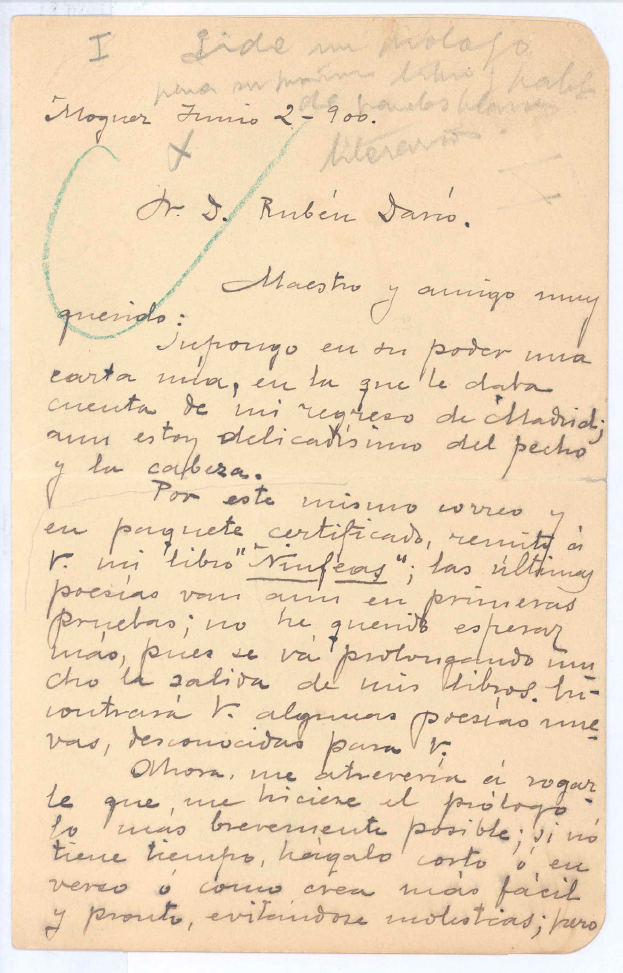 I Pide un prólogo
para su próximo libro y habla
de planes
literarios.
Moguer Junio 2-900.
X
Sr. D. Rubén Darío.
Maestro y amigo muy
querido:
Supongo en su poder una
carta mía, en la que le daba
cuenta de mi regreso de Madrid;
aun estoy delicadísimo del pecho
y la cabeza.
Por este mismo correo y
en paquete certificado, remito á
V. mi libro "Ninfeas"; las últimas
poesías van aun en primeras
pruebas; no he querido esperar
más, pues se vá prolongando mu
cho la salida de mis libros. En-
contrará V. algunas poesías nue-
vas, desconocidas para V.
Ahora, me atrevería á rogar-
le que, me hiciese el prólogo
lo más brevemente posible; si nó
tiene tiempo, hágalo corto ó en
verso ó como crea más fácil
y pronto, evitándose molestias; pero